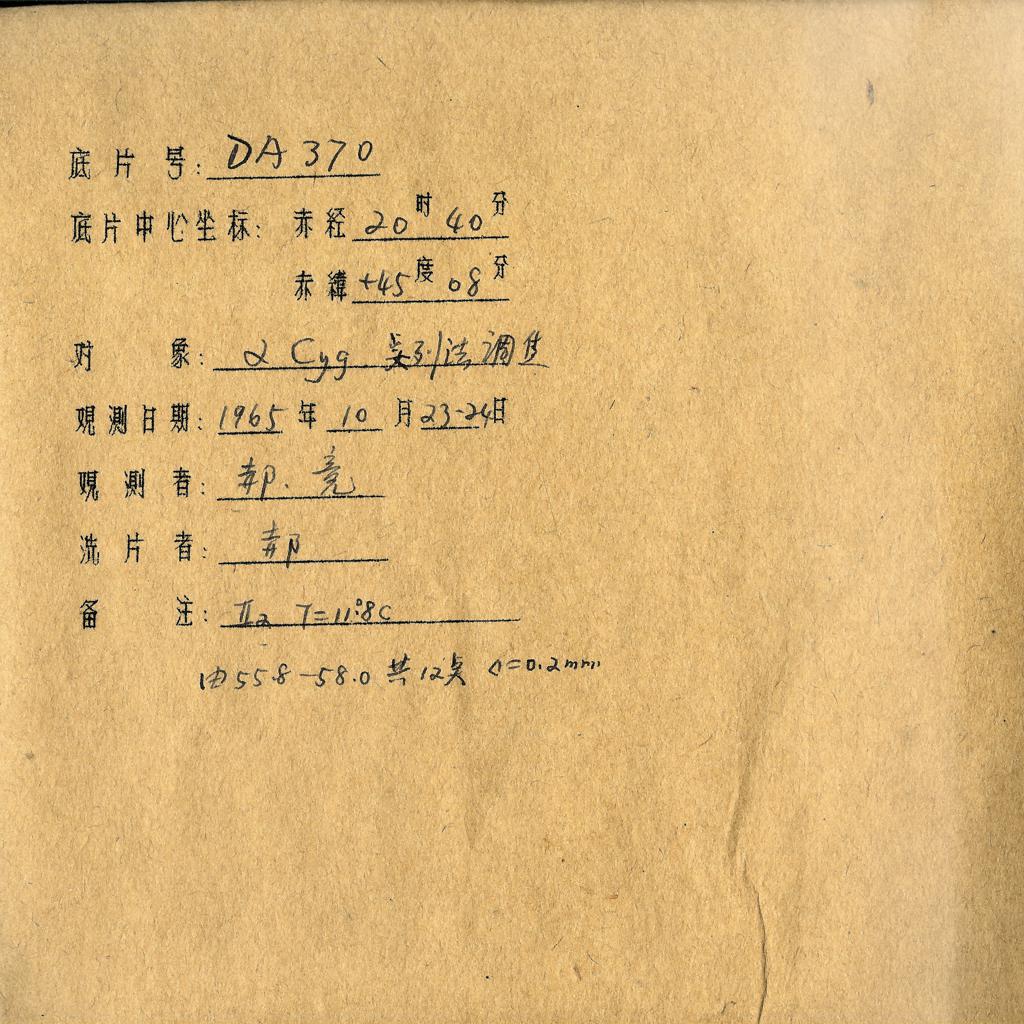 底片号: DA 370
底片中心坐标: 赤经 20时 40分
赤緯 +45度 08分
对象: α Cyg 点列法调焦
观测日期: 1965年 10月 23-24日
观测者: 郝. 竞
洗片者: 郝
备注: IIa T=11°.8C
由55.8-58.0 共12点 Δ=0.2mm